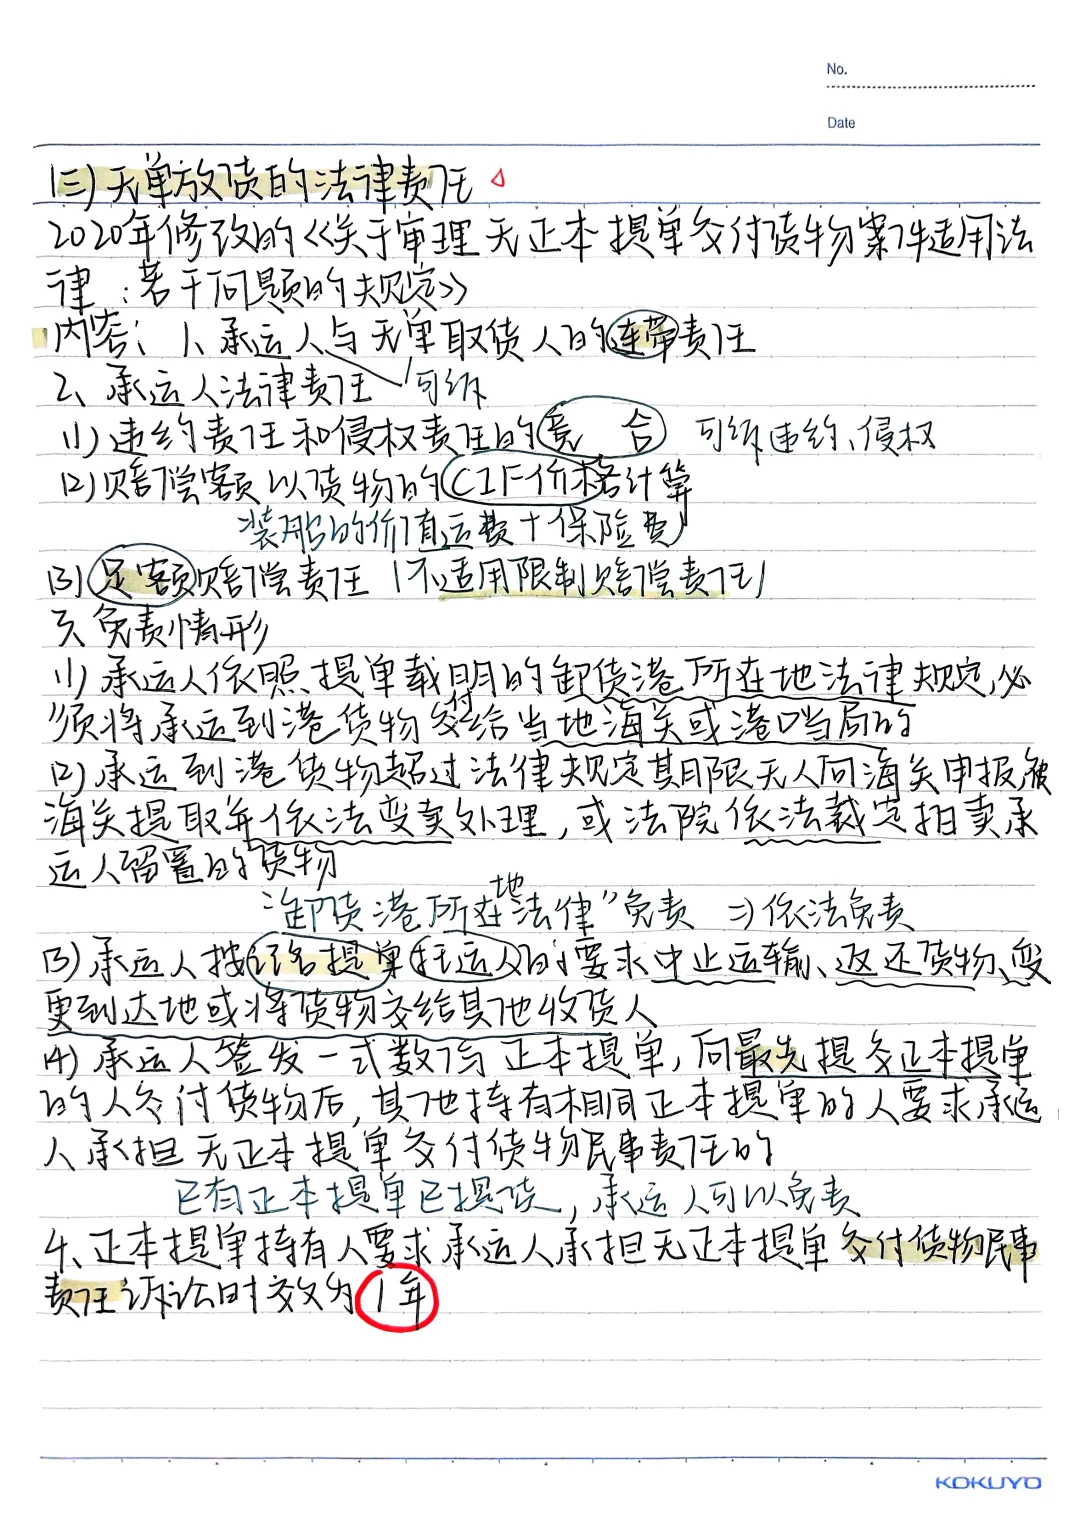 No.
Date
(三)无单放货的法律责任 △
2020年修改的《关于审理无正本提单交付货物案件适用法
律若干问题的规定》
内容：1、承运人与无单取货人的连带责任
2、承运人法律责任 可诉
(1)违约责任和侵权责任的竞合 可诉违约、侵权
(2)赔偿额以货物的CIF价格计算
装船的价值运费+保险费
(3)足额赔偿责任(不适用限制赔偿责任)
3、免责情形
(1)承运人依照提单载明的卸货港所在地法律规定,必
须将承运到港货物交付给当地海关或港口当局的
(2)承运到港货物超过法律规定期限无人向海关申报,被
海关提取并依法变卖处理,或法院依法裁定拍卖承
运人留置的货物
"卸货港所在地法律"免责 ⇒依法免责
(3)承运人按记名提单托运人的要求中止运输、返还货物、变
更到达地或将货物交给其他收货人
(4)承运人签发一式数份正本提单,向最先提交正本提单
的人交付货物后,其他持有相同正本提单的人要求承运
人承担无正本提单交付货物民事责任的
已有正本提单已提货,承运人可以免责
4、正本提单持有人要求承运人承担无正本提单交付货物民事
责任诉讼时效为1年
KOKUYO